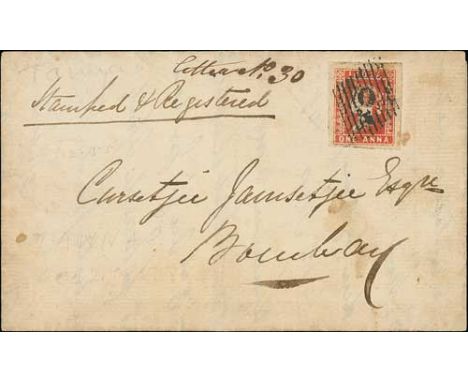 Letter No. 30
Stamped & Registered
ONE ANNA
Cursetjee Jamsetjee Esqre
Bombay